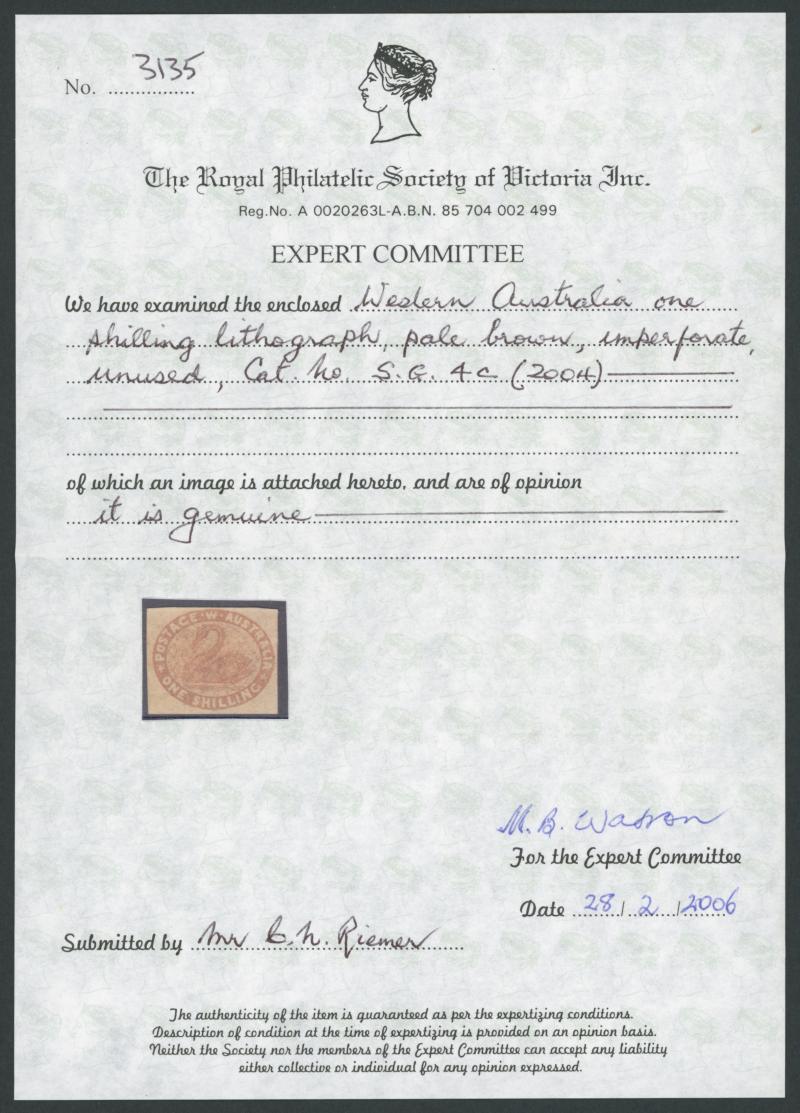 No. 3135
The Royal Philatelic Society of Victoria Inc.
Reg.No. A 0020263L-A.B.N. 85 704 002 499
EXPERT COMMITTEE
We have examined the enclosed Western Australia one
shilling lithograph, pale brown, imperforate,
unused, Cat. No. S.G. 4c (2004)
of which an image is attached hereto, and are of opinion
it is genuine
POSTAGE · W · AUSTRALIA
ONE SHILLING
M. B. Watson
For the Expert Committee
Date 28/2/2006
Submitted by Mr C. N. Riemer
The authenticity of the item is guaranteed as per the expertizing conditions.
Description of condition at the time of expertizing is provided on an opinion basis.
Neither the Society nor the members of the Expert Committee can accept any liability
either collective or individual for any opinion expressed.